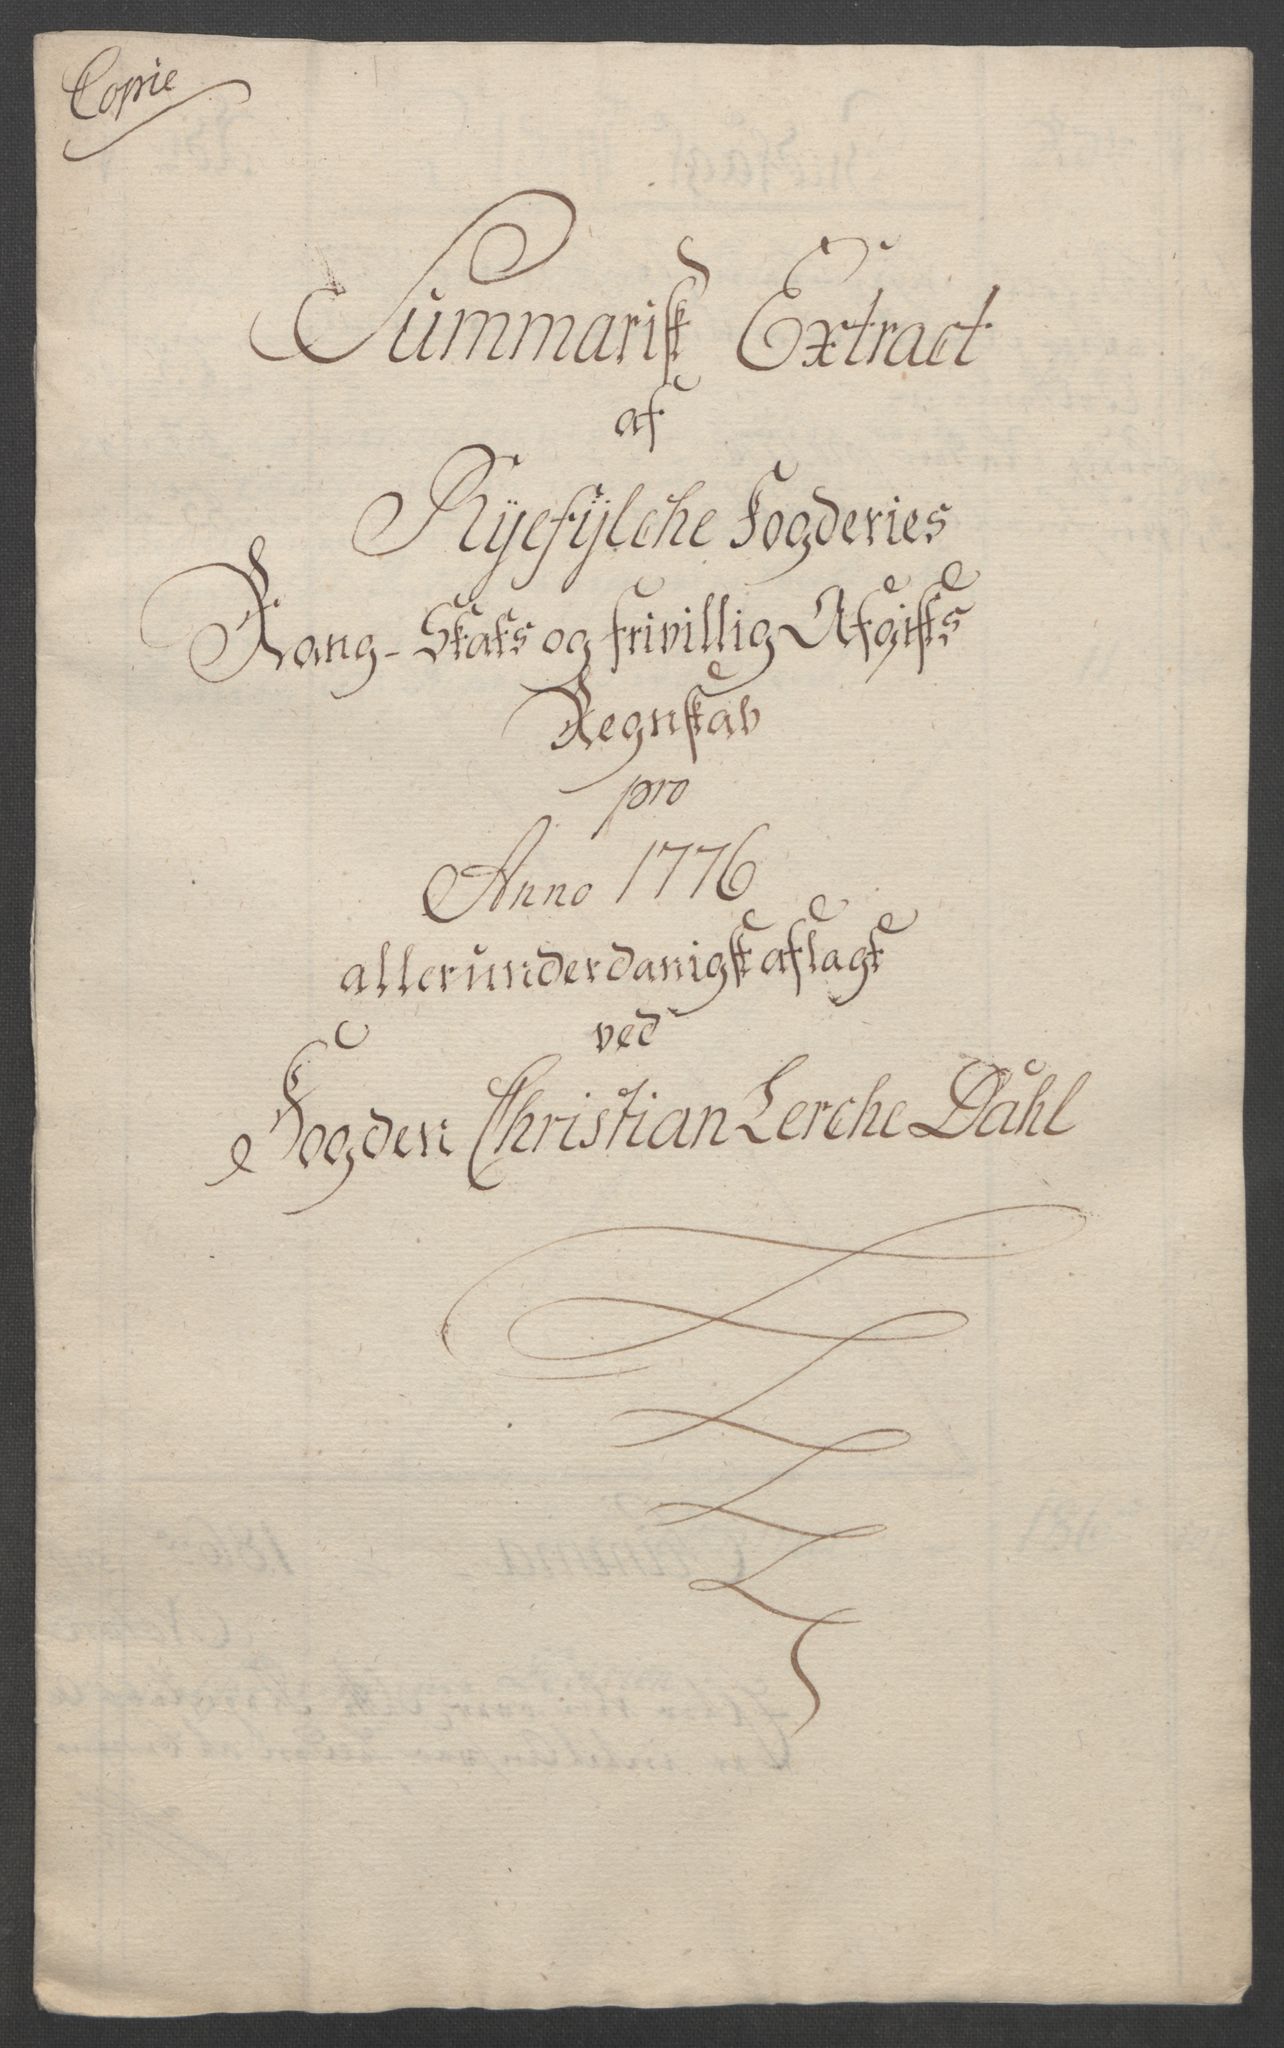 Copie
Summarisk Extract
af
Ryefylche Fogderies
Rang-Skats og frivillig Afgifts
Regnskab
pro
Anno 1776
allerunderdanigst aflagt
ved
Fogden Christian Lerche Dahl